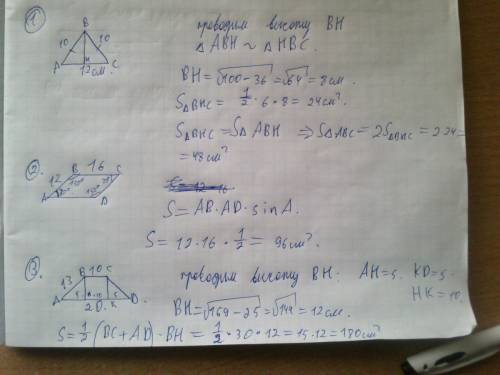 ① проводим высоту BH
B
10 10
A H C
12 см.
△ABH ~ △HBC.
BH = √100-36 = √64 = 8 см.
S△BHC = 1/2 · 6 · 8 = 24 см².
S△BHC = S△ABH ⇒ S△ABC = 2S△BHC = 2·24 =
= 48 см²
②. B 16 C
12
150°
A D
S = AB · AD · sin A.
S = 12 · 16 · 1/2 = 96 см².
③. B 10 C
13
A 5 10 5 D.
K
20.
проводим высоту BH: AH=5. KD=5.
HK=10.
BH = √169-25 = √144 = 12 см.
S = 1/2 (BC + AD) · BH = 1/2 · 30 · 12 = 15 · 12 = 180 см²